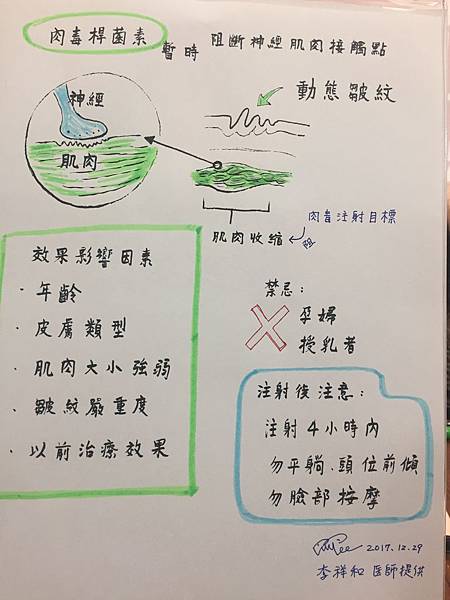 肉毒桿菌素 暫時 阻斷神經肌肉接觸點
神經
肌肉
動態皺紋
肌肉收縮
肉毒注射目標
阻
效果影響因素
· 年齡
· 皮膚類型
· 肌肉大小強弱
· 皺紋嚴重度
· 以前治療效果
禁忌：
孕婦
授乳者
注射後注意：
注射4小時內
勿平躺、頭位前傾
勿臉部按摩
2017.12.29
李祥和 医師提供